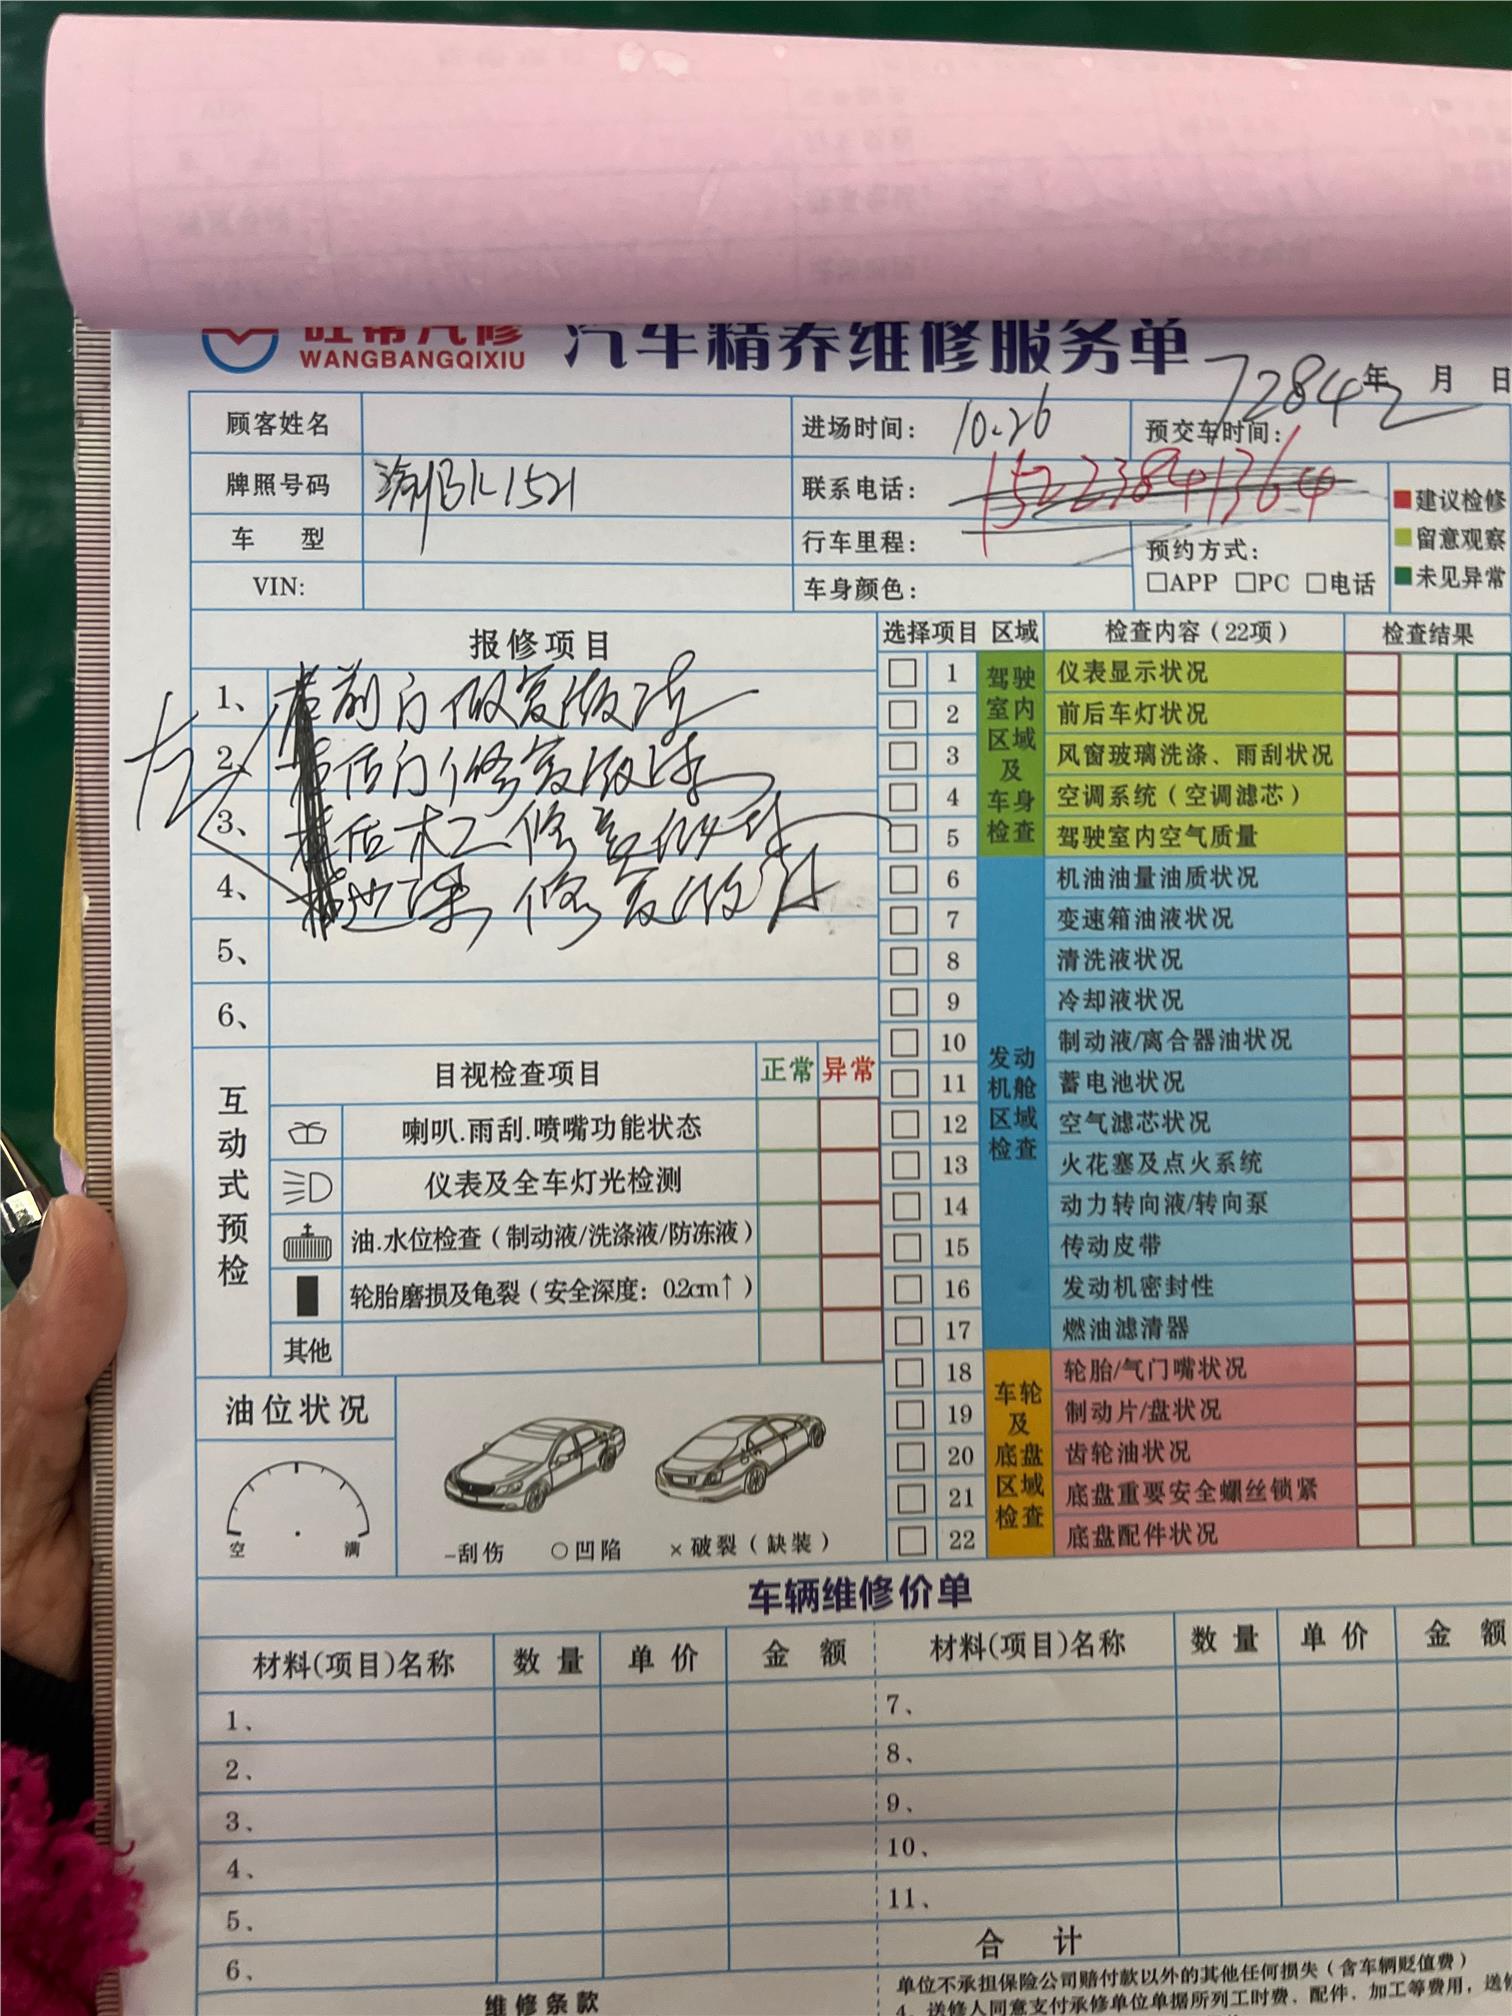 旺帮汽修
WANGBANGQIXIU
汽车精养维修服务单
72842
年 月 日
顾客姓名
进场时间： 10.26
预交车时间：
牌照号码 渝BK1521
联系电话： 15223841364
建议检修
留意观察
未见异常
车 型
行车里程：
预约方式：
□APP □PC □电话
VIN:
车身颜色：
报修项目
左
1、 前门修复做漆
2、 后门修复做漆
3、 后 修复做漆
4、 边梁 修复做漆
5、
6、
选择项目 区域 检查内容（22项） 检查结果
驾驶室内区域及车身检查
1 仪表显示状况
2 前后车灯状况
3 风窗玻璃洗涤、雨刮状况
4 空调系统（空调滤芯）
5 驾驶室内空气质量
发动机舱区域检查
6 机油油量油质状况
7 变速箱油液状况
8 清洗液状况
9 冷却液状况
10 制动液/离合器油状况
11 蓄电池状况
12 空气滤芯状况
13 火花塞及点火系统
14 动力转向液/转向泵
15 传动皮带
16 发动机密封性
17 燃油滤清器
车轮及底盘区域检查
18 轮胎/气门嘴状况
19 制动片/盘状况
20 齿轮油状况
21 底盘重要安全螺丝锁紧
22 底盘配件状况
互动式预检
目视检查项目 正常 异常
喇叭.雨刮.喷嘴功能状态
仪表及全车灯光检测
油.水位检查（制动液/洗涤液/防冻液）
轮胎磨损及龟裂（安全深度：0.2cm↑）
其他
油位状况
空 满
–刮伤 ○凹陷 ×破裂（缺装）
车辆维修价单
材料(项目)名称 数量 单价 金额 材料(项目)名称 数量 单价 金额
1、 7、
2、 8、
3、 9、
4、 10、
5、 11、
6、 合计
维修条款
单位不承担保险公司赔付款以外的其他任何损失（含车辆贬值费）
4、送修人同意支付承修单位单据所列工时费、配件、加工等费用，送修